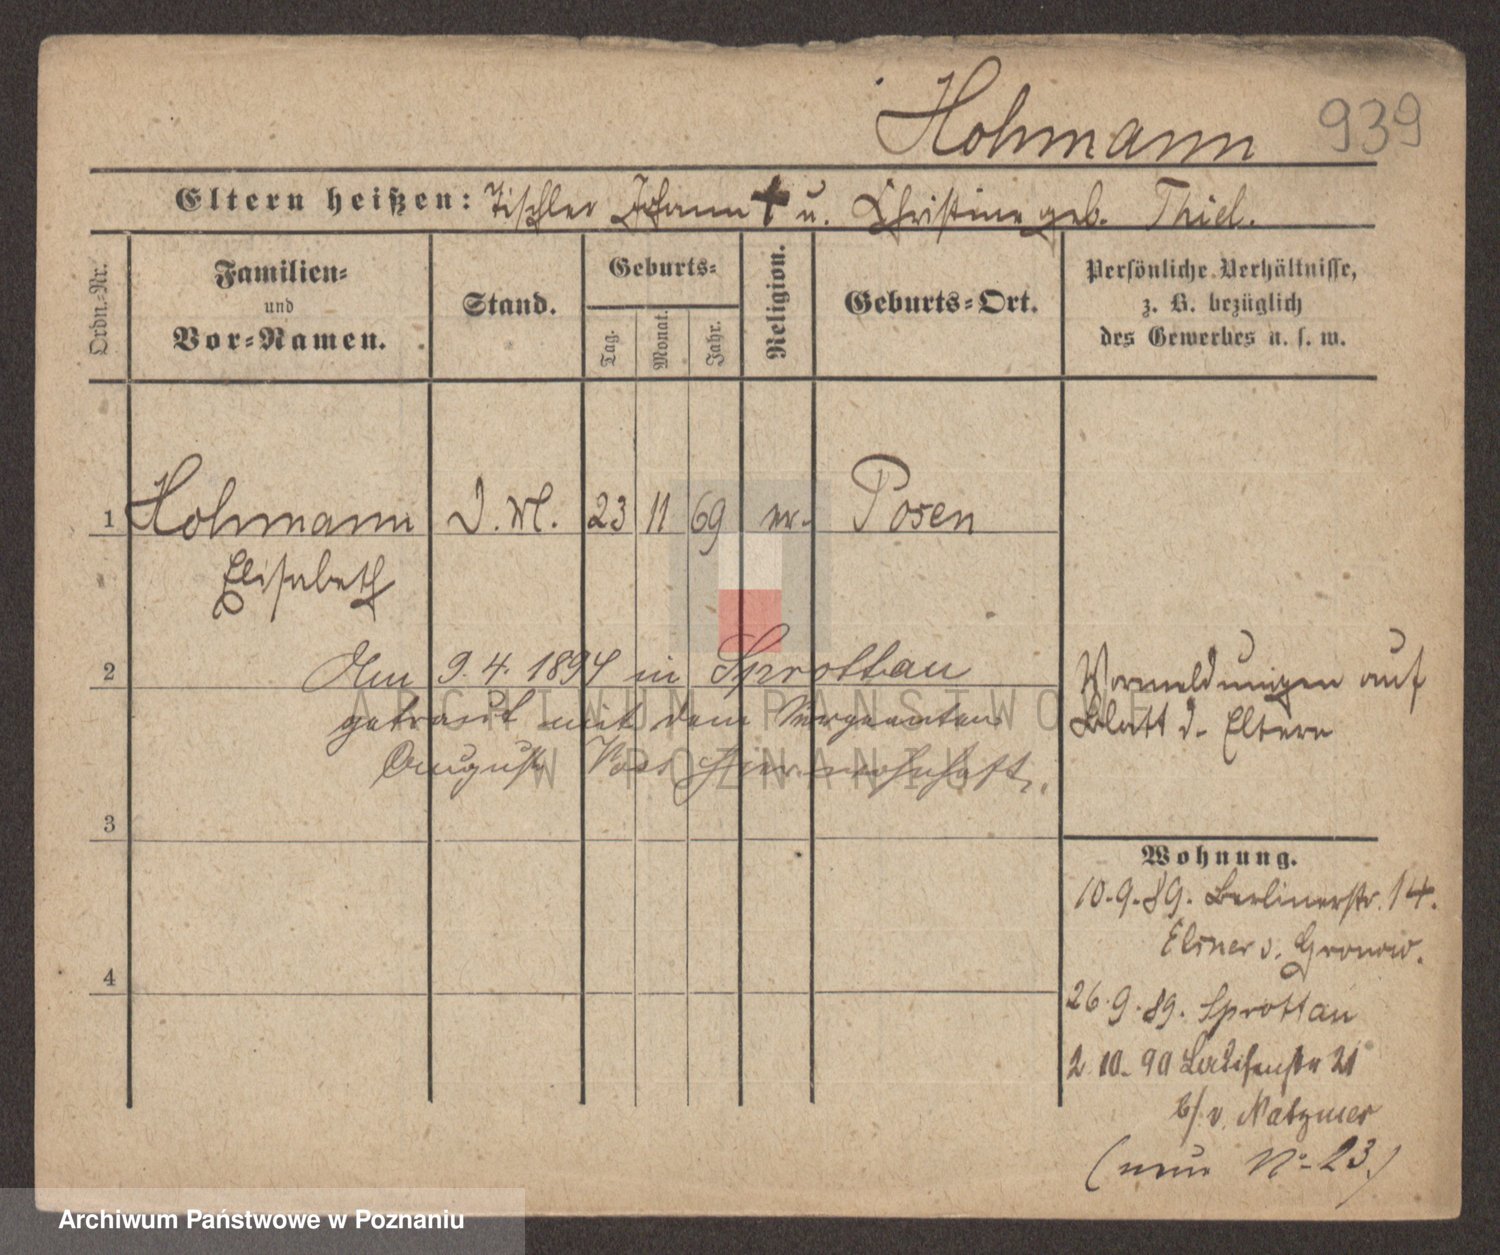 Hohmann 939
Eltern heißen: Tischler Johann † u. Christine geb. Thiel.
Ordn.-Nr.
Familien-
und
Vor-Namen.
Stand.
Geburts-
Tag.
Monat.
Jahr.
Religion.
Geburts-Ort.
Persönliche Verhältnisse,
z. B. bezüglich
des Gewerbes u. s. w.
1 Hohmann D. M. 23 11 69 ev. Posen
Elisabeth
2 Am 9.4.1894 in Sprottau
getraut mit dem
August
Vormeldungen auf
Blatt d. Eltern
3
4
Wohnung.
10.9.89. Berlinerstr. 14.
Elsner v. Gronow.
26.9.89. Sprottau
2.10.90 Louisenstr 21
b/ v. Natzmer
(neue No 23.)
ARCHIWUM PAŃSTWOWE
W POZNANIU
Archiwum Państwowe w Poznaniu